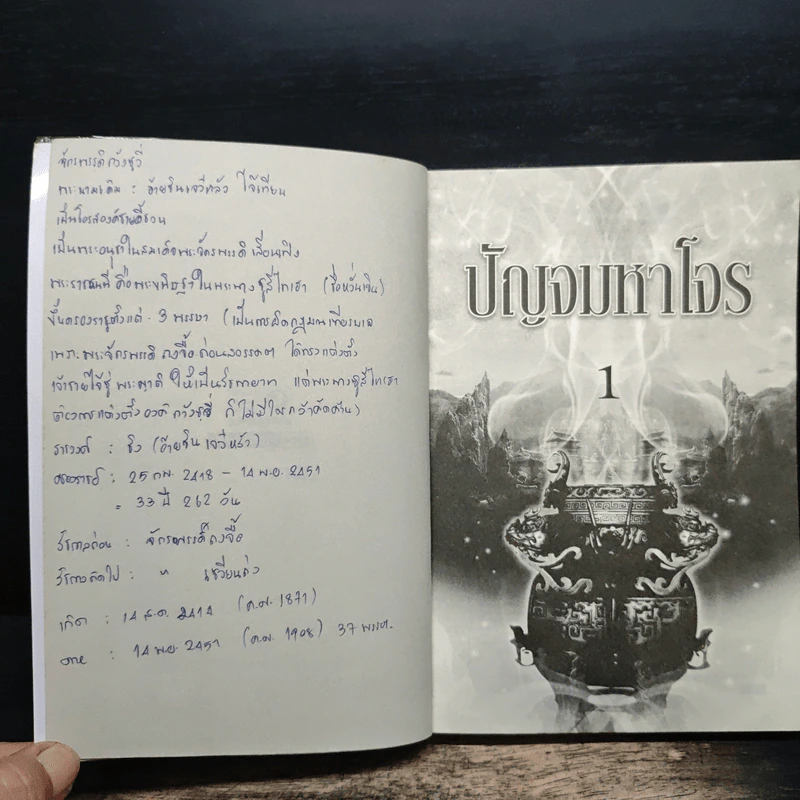 จักรพรรดิกวังซวี่
พระนามเดิม : อ้ายซินเจวี๋หลัว ไจ้เทียน
เป็นโอรสองค์ชายอี้ชวน
เป็นพระอนุชาในสมเด็จพระจักรพรรดิเสียนเฟิง
พระราชชนนี คือพระขนิษฐาในพระนางซูสีไทเฮา (
ขึ้นครองราชตั้งแต่ 3 พรรษา (เป็นการผิดกฎมณเทียรบาล
เพราะพระจักรพรรดิถงจื้อก่อนสวรรคต ได้ทรงแต่งตั้ง
เจ้าชายไจ้ซู่ พระญาติ ให้เป็นรัชทายาท แต่พระนางซูสีไทเฮา
ต้องการแต่งตั้งองค์กวังซวี่ ก็ไม่มีใครกล้าคัดค้าน)
ราชวงศ์ : ชิง (อ้ายซินเจวี๋หลัว)
ครองราชย์ : 25 กพ. 2418 - 14 พ.ย. 2451
= 33 ปี 262 วัน
รัชกาลก่อน : จักรพรรดิถงจื้อ
รัชกาลถัดไป : " เซวียนถ่ง
เกิด : 14 ส.ค. 2414 (ค.ศ. 1871)
ตาย : 14 พย. 2451 (ค.ศ. 1908) 37 พรรษา
ปัญจมหาโจร
1